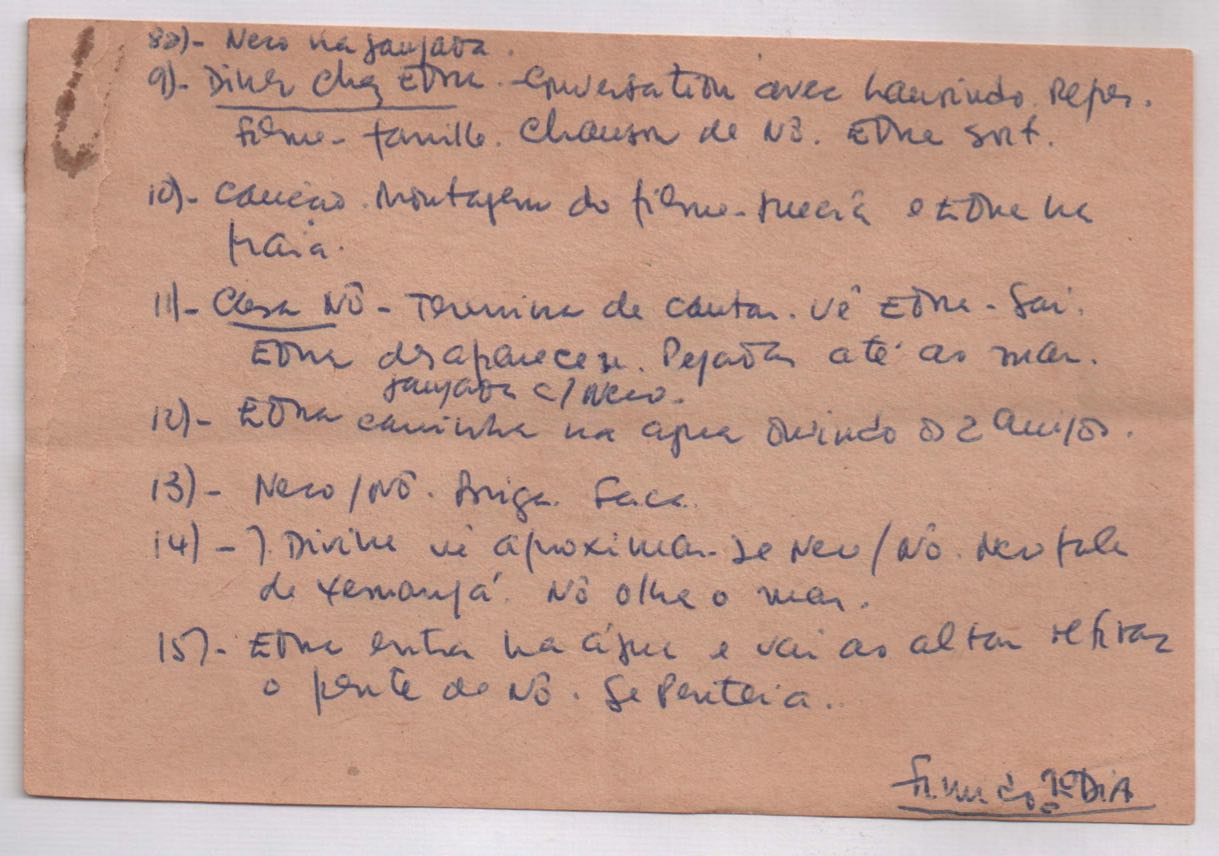 8a)- Neco na jangada.
9)- Diner chez Edna. Conversation avec Laurindo. Repas.
filme - famille. Chanson de Nô. Edna sort.
10)- Canção. Montagem do filme - Suécia e Edna na
praia.
11)- Casa Nô - Termina de cantar. Vê Edna - Sai.
Edna desapareceu. Pegadas até ao mar.
jangada c/ Neco.
12)- Edna caminha na água ouvindo os 2 amigos.
13)- Neco/Nô. Briga. Faca.
14) - J. Divino vê aproximar-se Neco/Nô. Neco fala
de Yemanjá. Nô olha o mar.
15)- Edna entra na água e vai ao altar retirar
o pente de Nô. Se Penteia.
DIA